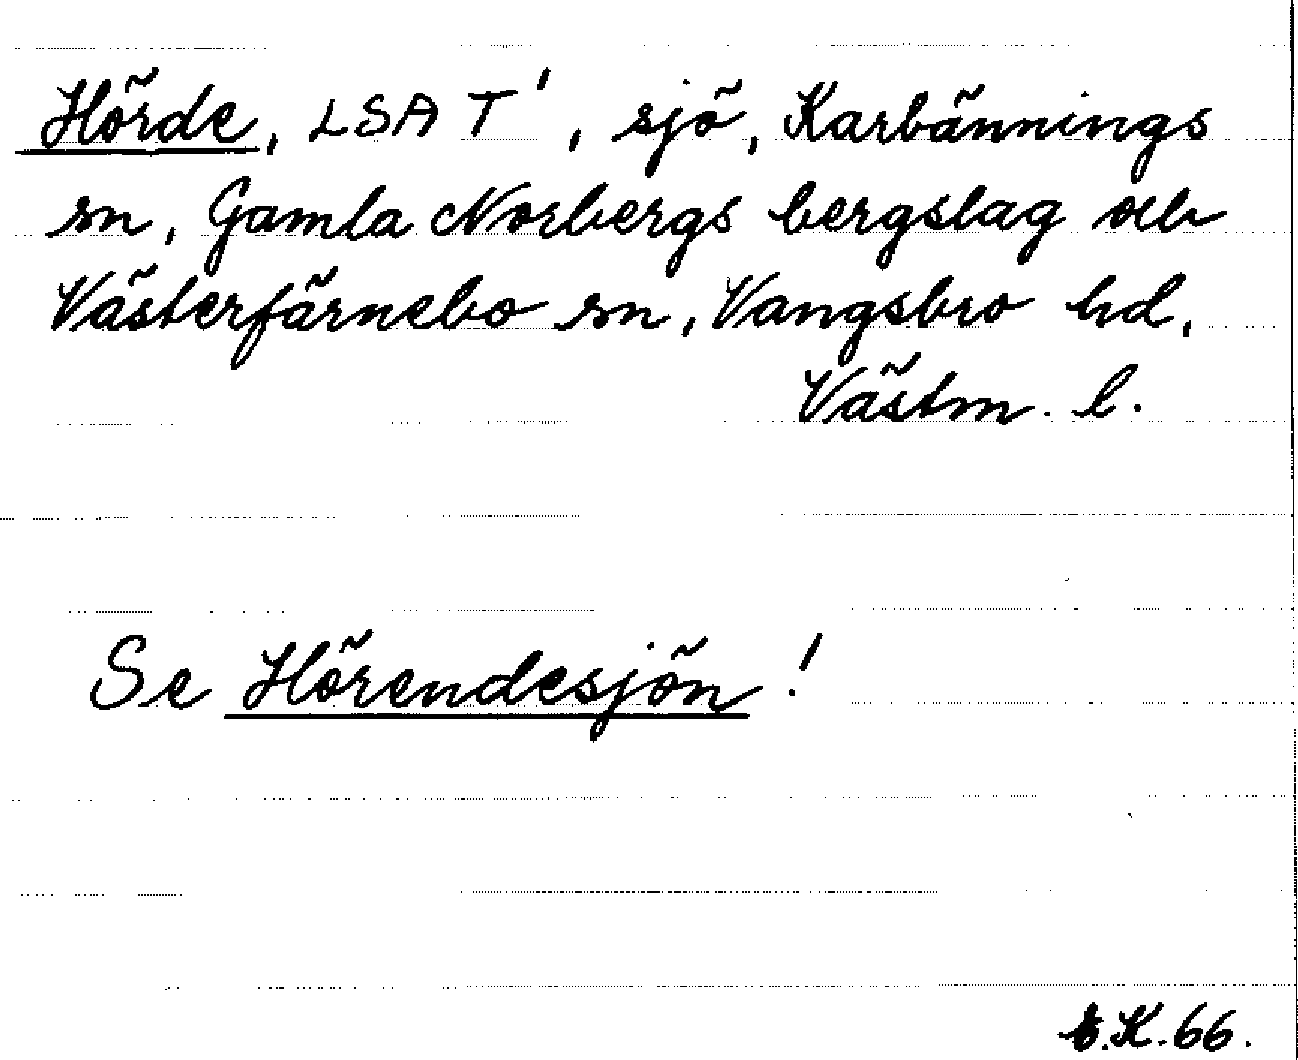 Hörde, LSA T', sjö, Karbännings
sn, Gamla Norbergs bergslag och
Västerfärnebo sn, Vangsbro hd,
Västm. l.
Se Hörendesjön!
K.66.